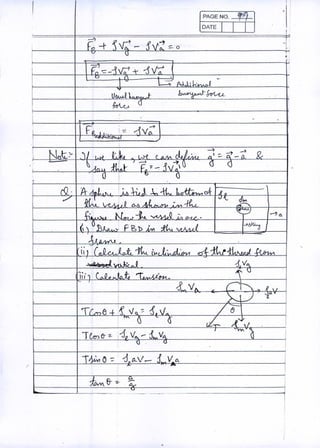 PAGE NO.
DATE
F_B + ρVg - ρVa = 0
F_B = -ρVg + ρVa
Usual buoyant force
Additional buoyant force
F_B additional = ρVa
Note: If we like, we can define g' = g - a &
say that F_B = -ρVg'
Q: A sphere is tied to the bottom of
the vessel as shown in the
figure. Now the vessel is acc.
(i) Draw FBD in the vessel
frame.
(ii) Calculate the inclination of the thread from
vertical.
(iii) Calculate Tension.
ρ_l
a
ρ_l Vg
ρ_m Va
ρ_l aV
θ
T
ρ_m Vg
TCosθ + ρ_m Vg = ρ_l Vg
Tcosθ = ρ_l Vg - ρ_m Vg
Tsinθ = ρ_l aV - ρ_m Va
tanθ = a/g